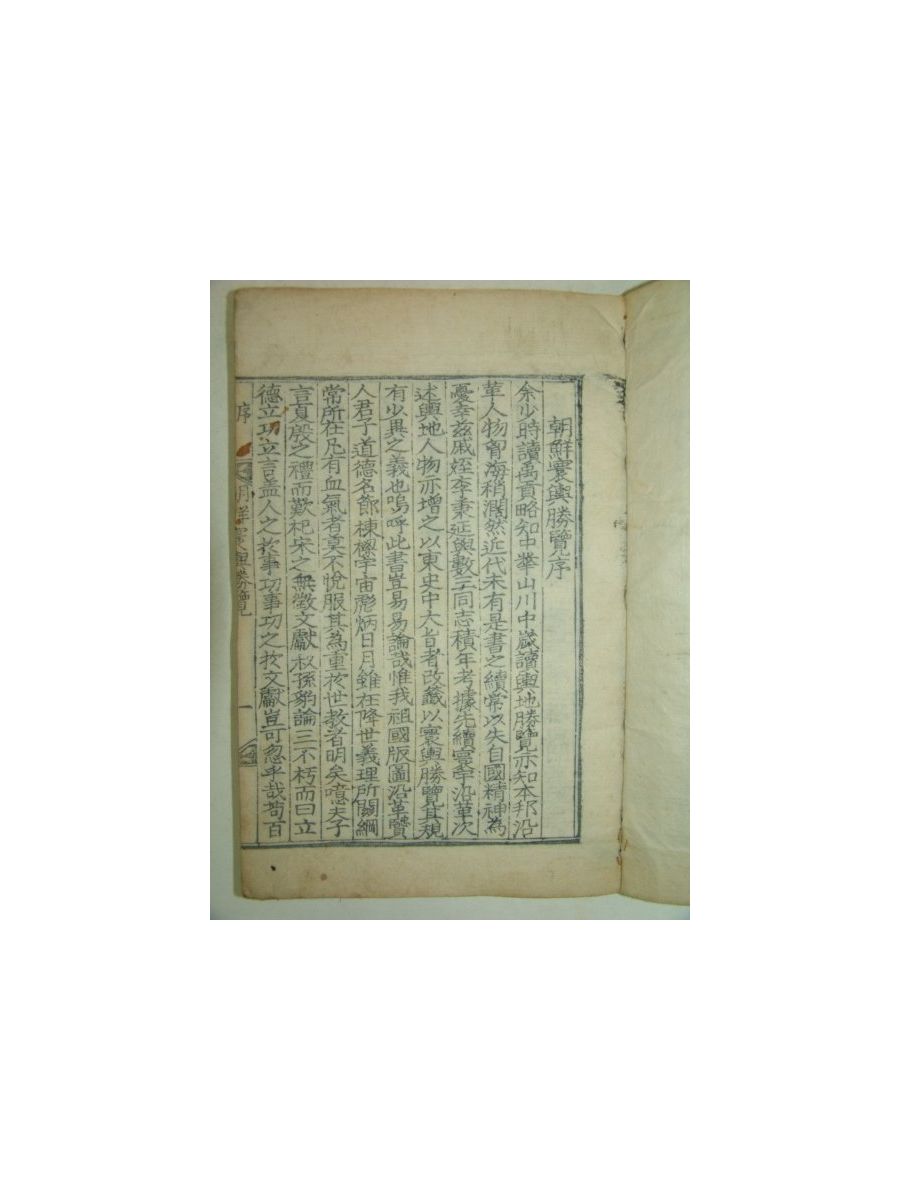 朝鮮寰輿勝覽序
余少時讀禹貢略知中華山川中歲讀輿地勝覽亦知本邦沿
革人物胷海稍濶然近代未有是書之續常以失自國精神為
憂幸玆戚姪李秉延與數三同志積年考據先續寰宇沿革次
述輿地人物亦增之以東史中大旨者改籤以寰輿勝覽其規
有少異之義也嗚呼此書豈易易論哉惟我祖國版圖沿革賢
人君子道德名節棟樑宇宙彪炳日月雖在降世義理所關綱
常所在凡有血氣者莫不悅服其為重於世敎者明矣噫夫子
言夏殷之禮而歎杞宋之無徵文獻叔孫豹論三不朽而曰立
德立功立言盖人之於事功事功之於文獻豈可忽乎哉苟百
序 朝鮮寰輿勝覽 一